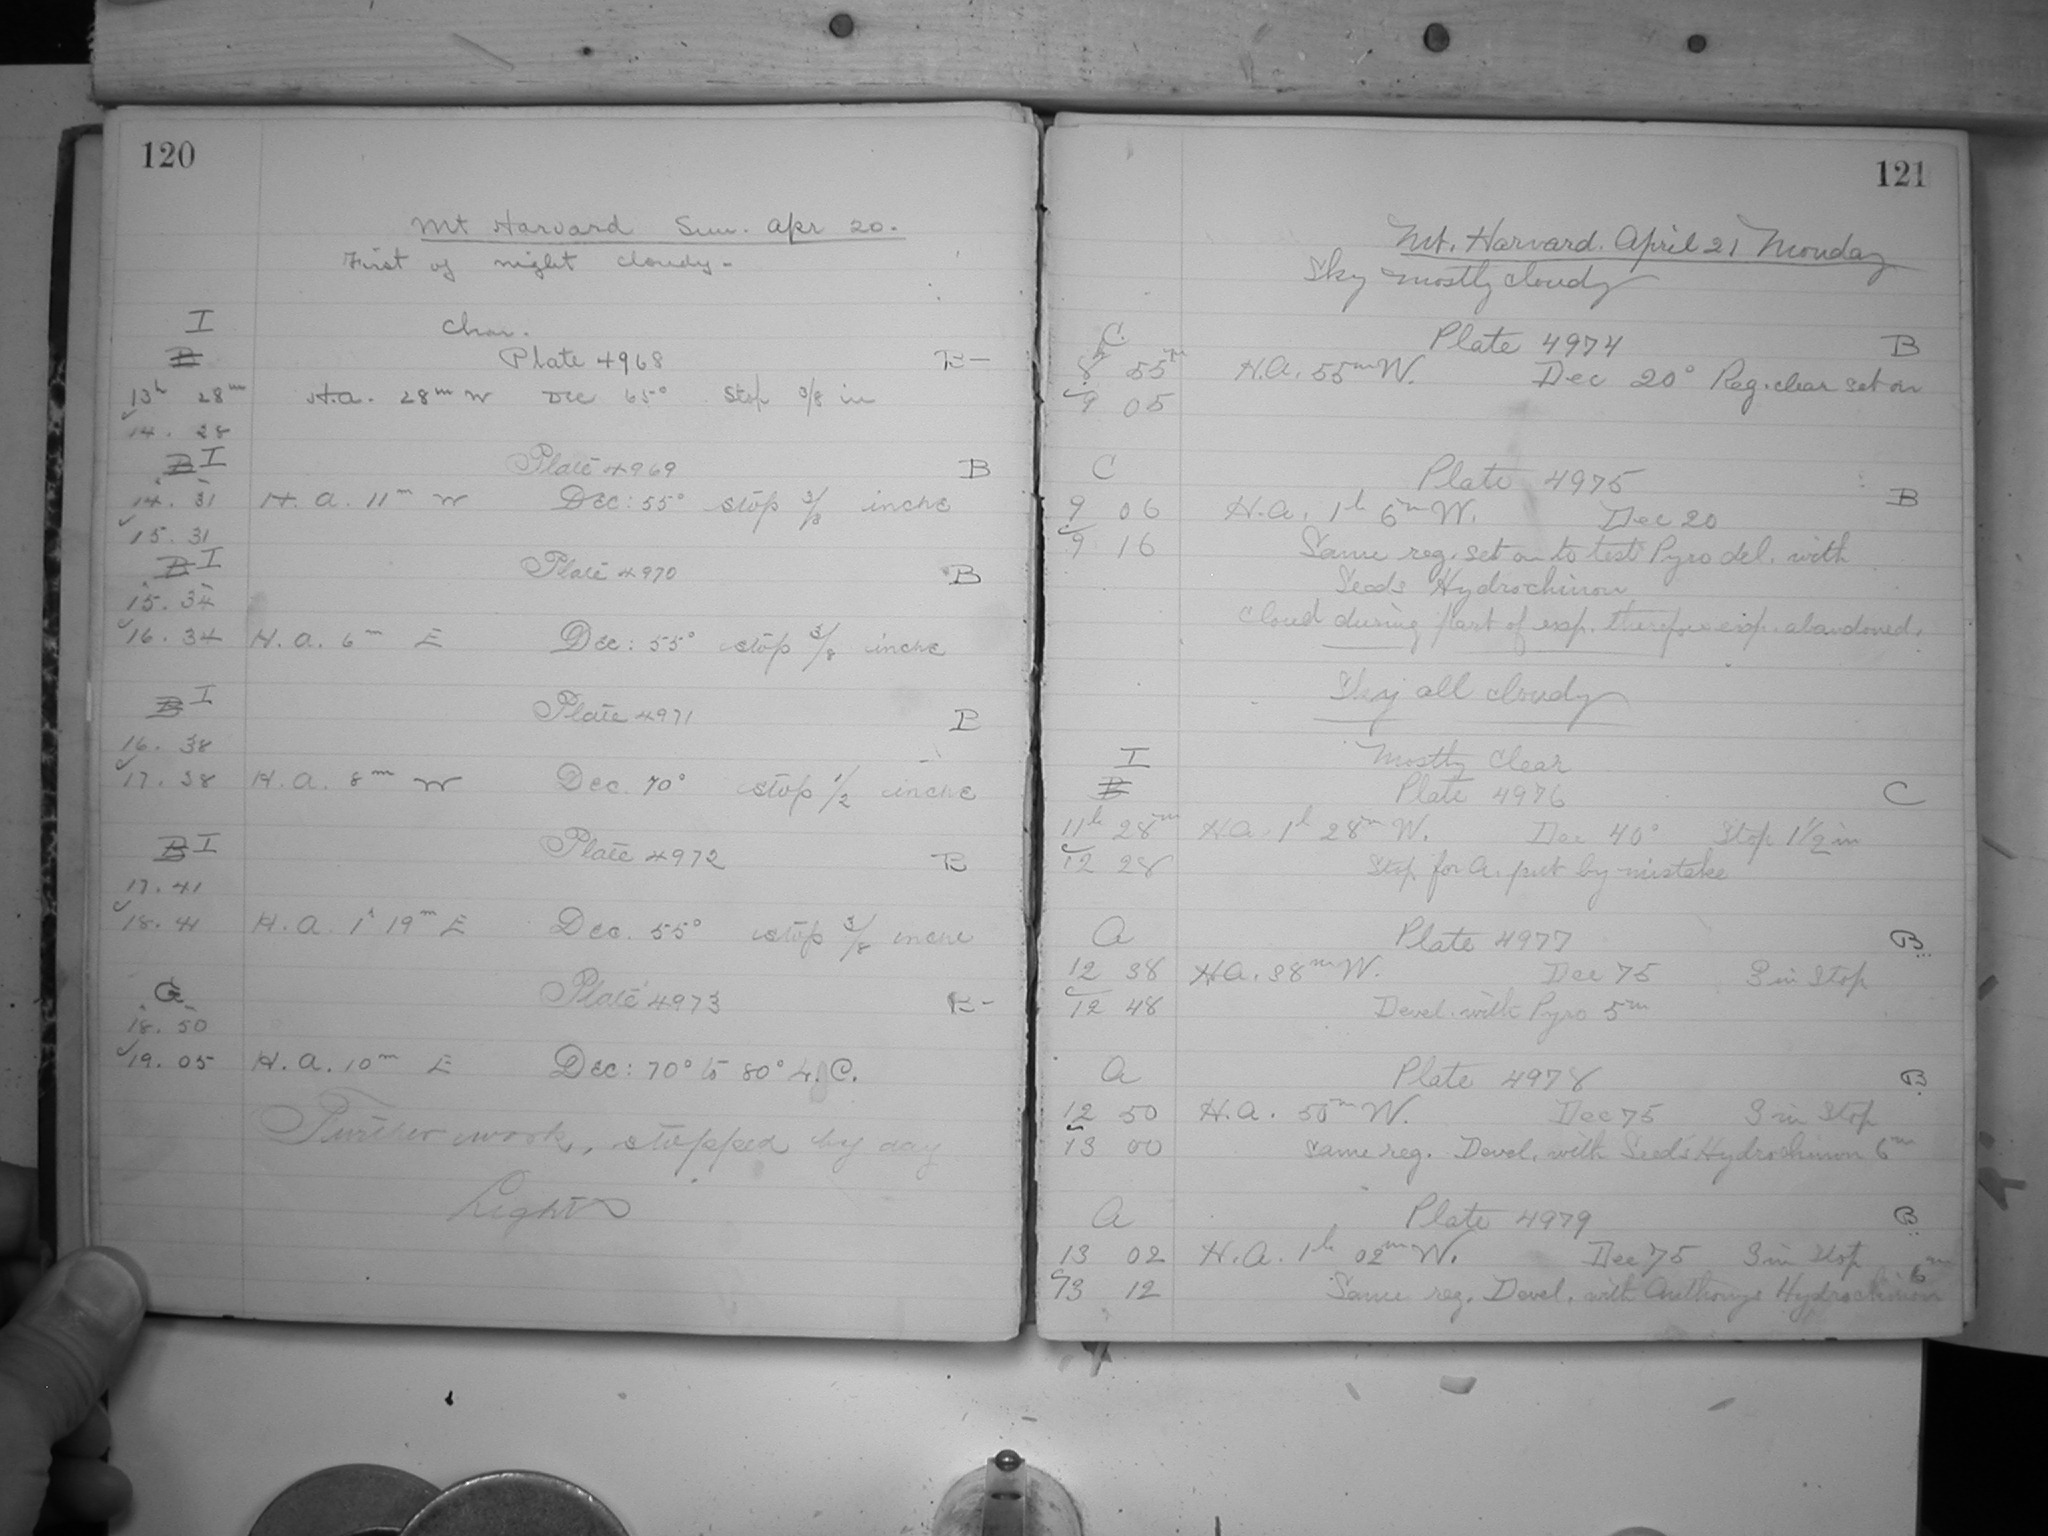 120
Mt Harvard Sun. Apr 20.
First of night cloudy -
I
Clear.
B Plate 4968 B-
13h 28m H.A. 28m W Dec 65° Stop 3/8 in
14. 28
B I Plate 4969 B
14. 31 H. A. 11m W Dec: 55° stop 3/8 inche
15. 31
B I Plate 4970 B
15. 34
16. 34 H. A. 6m E Dec: 55° stop 3/8 inche
B I Plate 4971 B
16. 38
17. 38 H. A. 8m W Dec. 70° stop 1/2 inche
B I Plate 4972 B
17. 41
18. 41 H. A. 1h 19m E Dec. 55° stop 3/8 inche
G Plate 4973 B-
18. 50
19. 05 H. A. 10m E Dec: 70° to 80° L. C.
Further work, stopped by day
Light
121
Mt. Harvard. April 21 Monday
Sky mostly cloudy
C. Plate 4974 B
8h 55m H.A. 55m W. Dec 20° Reg. clear set on
9 05
C Plate 4975 B
9 06 H.A. 1h 6m W. Dec 20
9 16 Same reg. set on to test Pyro del. with
Seeds Hydrochinon
Cloud during part of exp. therefore exp. abandoned.
Sky all cloudy
I Mostly Clear
B Plate 4976 C
11h 28m H.A. 1h 28m W. Dec 40° Stop 1 1/2 in
12 28 Stop for A. put by mistake
A Plate 4977 B
12 38 H.A. 38m W. Dec 75 3 in Stop
12 48 Devel. with Pyro 5m
A Plate 4978 B.
12 50 H.A. 50m W. Dec 75 3 in Stop
13 00 Same reg. Devel. with Seed's Hydrochinon 6m
A Plate 4979 B
13 02 H.A. 1h 02m W. Dec 75 3 in Stop
13 12 Same reg. Devel. with Anthonys Hydrochinon 6m